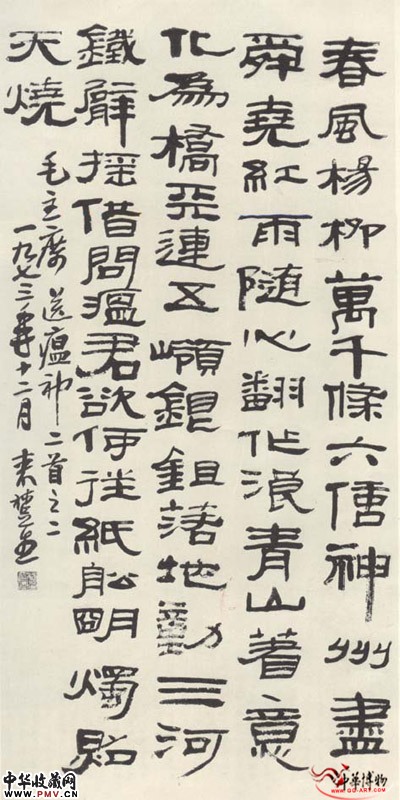 春風楊柳萬千條六億神州盡
舜堯紅雨隨心翻作浪青山著意
化為橋天連五嶺銀鉏落地動三河
鐵臂搖借問瘟君欲何往紙舩明燭照
天燒
毛主席送瘟神二首之二
一九七三年十二月 来楚生
中华收藏网
www.PMV.CN
中华博物
www.GG-ART.COM